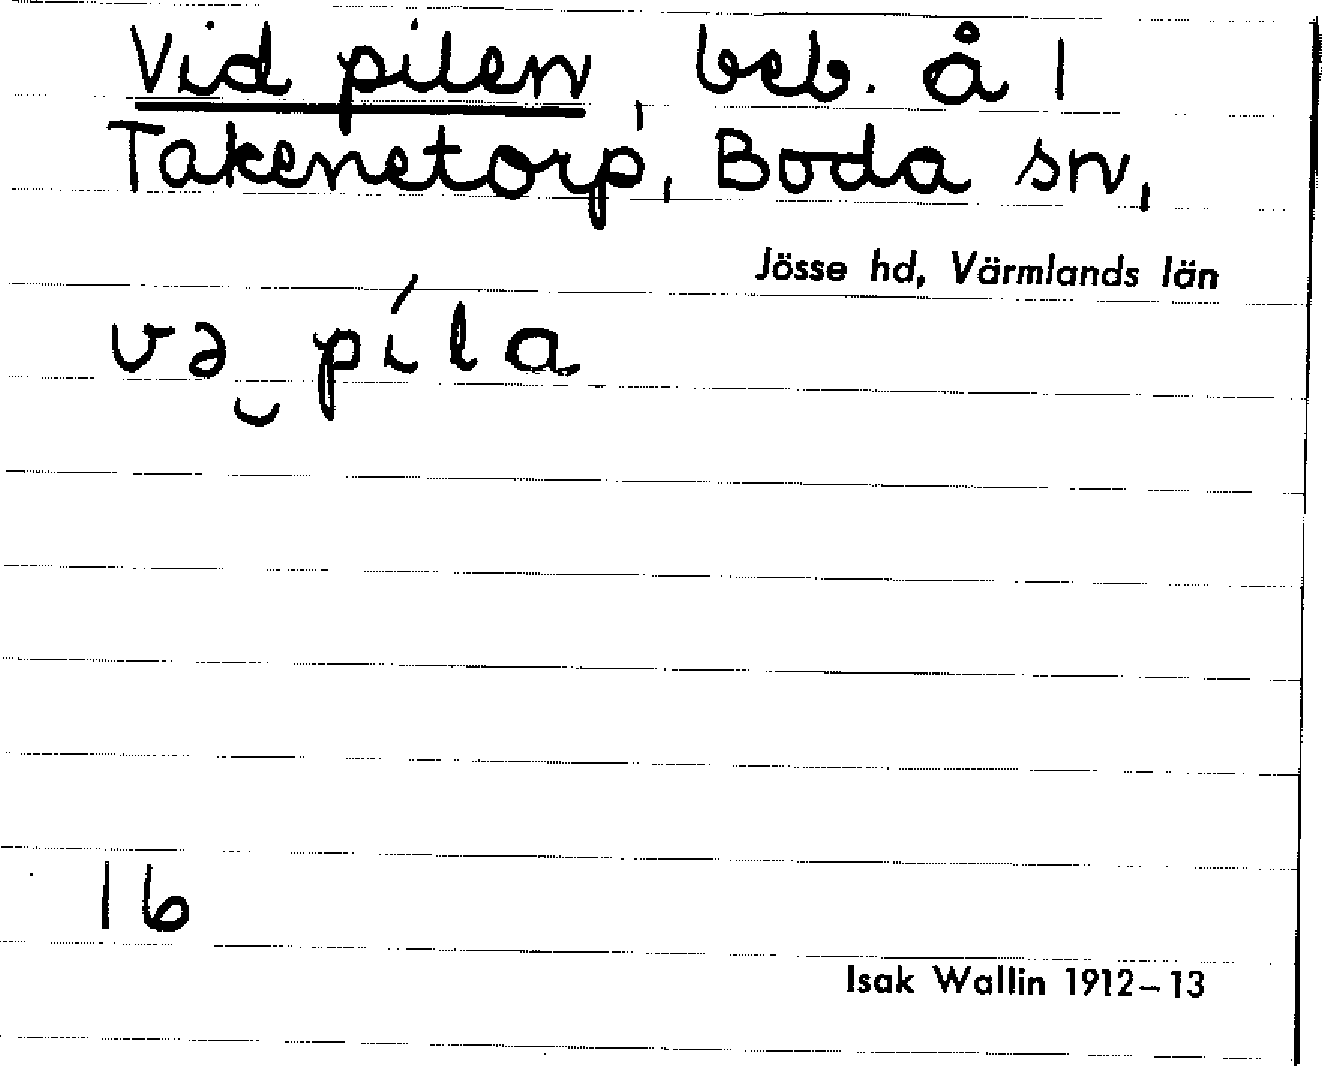 Vid pilen, beb. å 1
Takenetorp, Boda sn,
Jösse hd, Värmlands län
və‿píla
16
Isak Wallin 1912–13